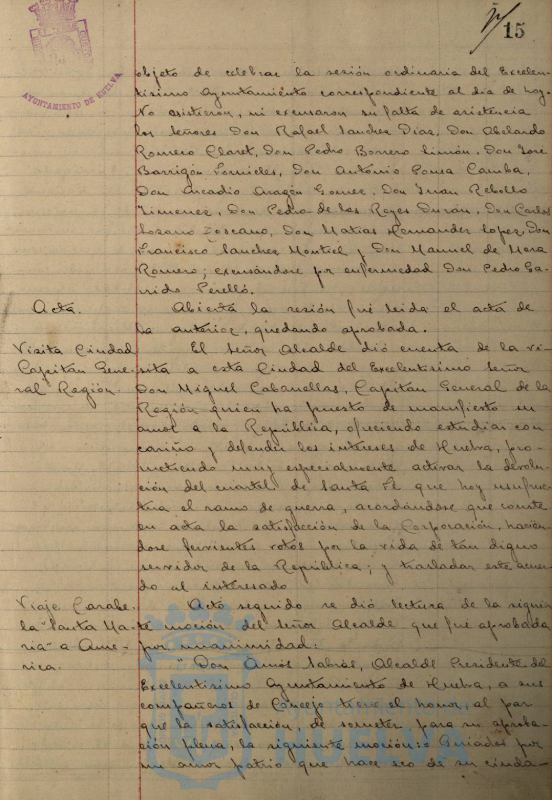 15
AYUNTAMIENTO DE HUELVA
objeto de celebrar la sesión ordinaria del Excelen-
tisimo Ayuntamiento correspondiente al dia de hoy.
No asistieron, ni excusaron su falta de asistencia
los señores Don Rafael Sanchez Diaz, Don Abelardo
Romero Claret, Don Pedro Borrero Limón, Don José
Barrigón Fornieles, Don António Ponsa Camba,
Don Arcadio Aragón Gomez, Don Juan Rebollo
Jimenez, Don Pedro de los Reyes Durán, Don Carlos
Lozano, Don Matias Hernandez Lopez, Don
Francisco Sanchez Montiel y Don Manuel de Mora
Romero; excusándose por enfermedad Don Pedro Ga-
rrido Perelló.
Acta.
Abierta la sesión fué leida el acta de
la anterior, quedando aprobada.
Visita Ciudad
Capitán Gene-
ral Región.
El Señor Alcalde dió cuenta de la vi-
sita a esta Ciudad del Excelentisimo Señor
Don Miguel Cabanellas, Capitán General de la
Región quien ha puesto de manifiesto su
amor a la República, ofreciendo estudiar con
cariño y defender los intereses de Huelva, pro-
metiendo muy especialmente activar la devolu-
ción del cuartel de Santa Fé que hoy usufruc-
túa el ramo de guerra, acordándose que conste
en acta la satisfacción de la Corporación, hacién-
dose fervientes votos por la vida de tan digno
servidor de la República; y trasladar este acuer-
do al interesado
Viaje Carabe-
la "Santa Ma-
ria" a Amé-
rica.
Acto seguido se dió lectura de la siguien-
te moción del Señor Alcalde que fué aprobada
por unanimidad:
"Don Amós Sabrás, Alcalde Presidente del
Excelentisimo Ayuntamiento de Huelva, a sus
compañeros de Concejo tiene el honor, al par
que la satisfacción, de someter para su aproba-
ción plena, la siguiente moción: Guiados por
un amor patrio que hace seo de su ciuda-
HUELVA